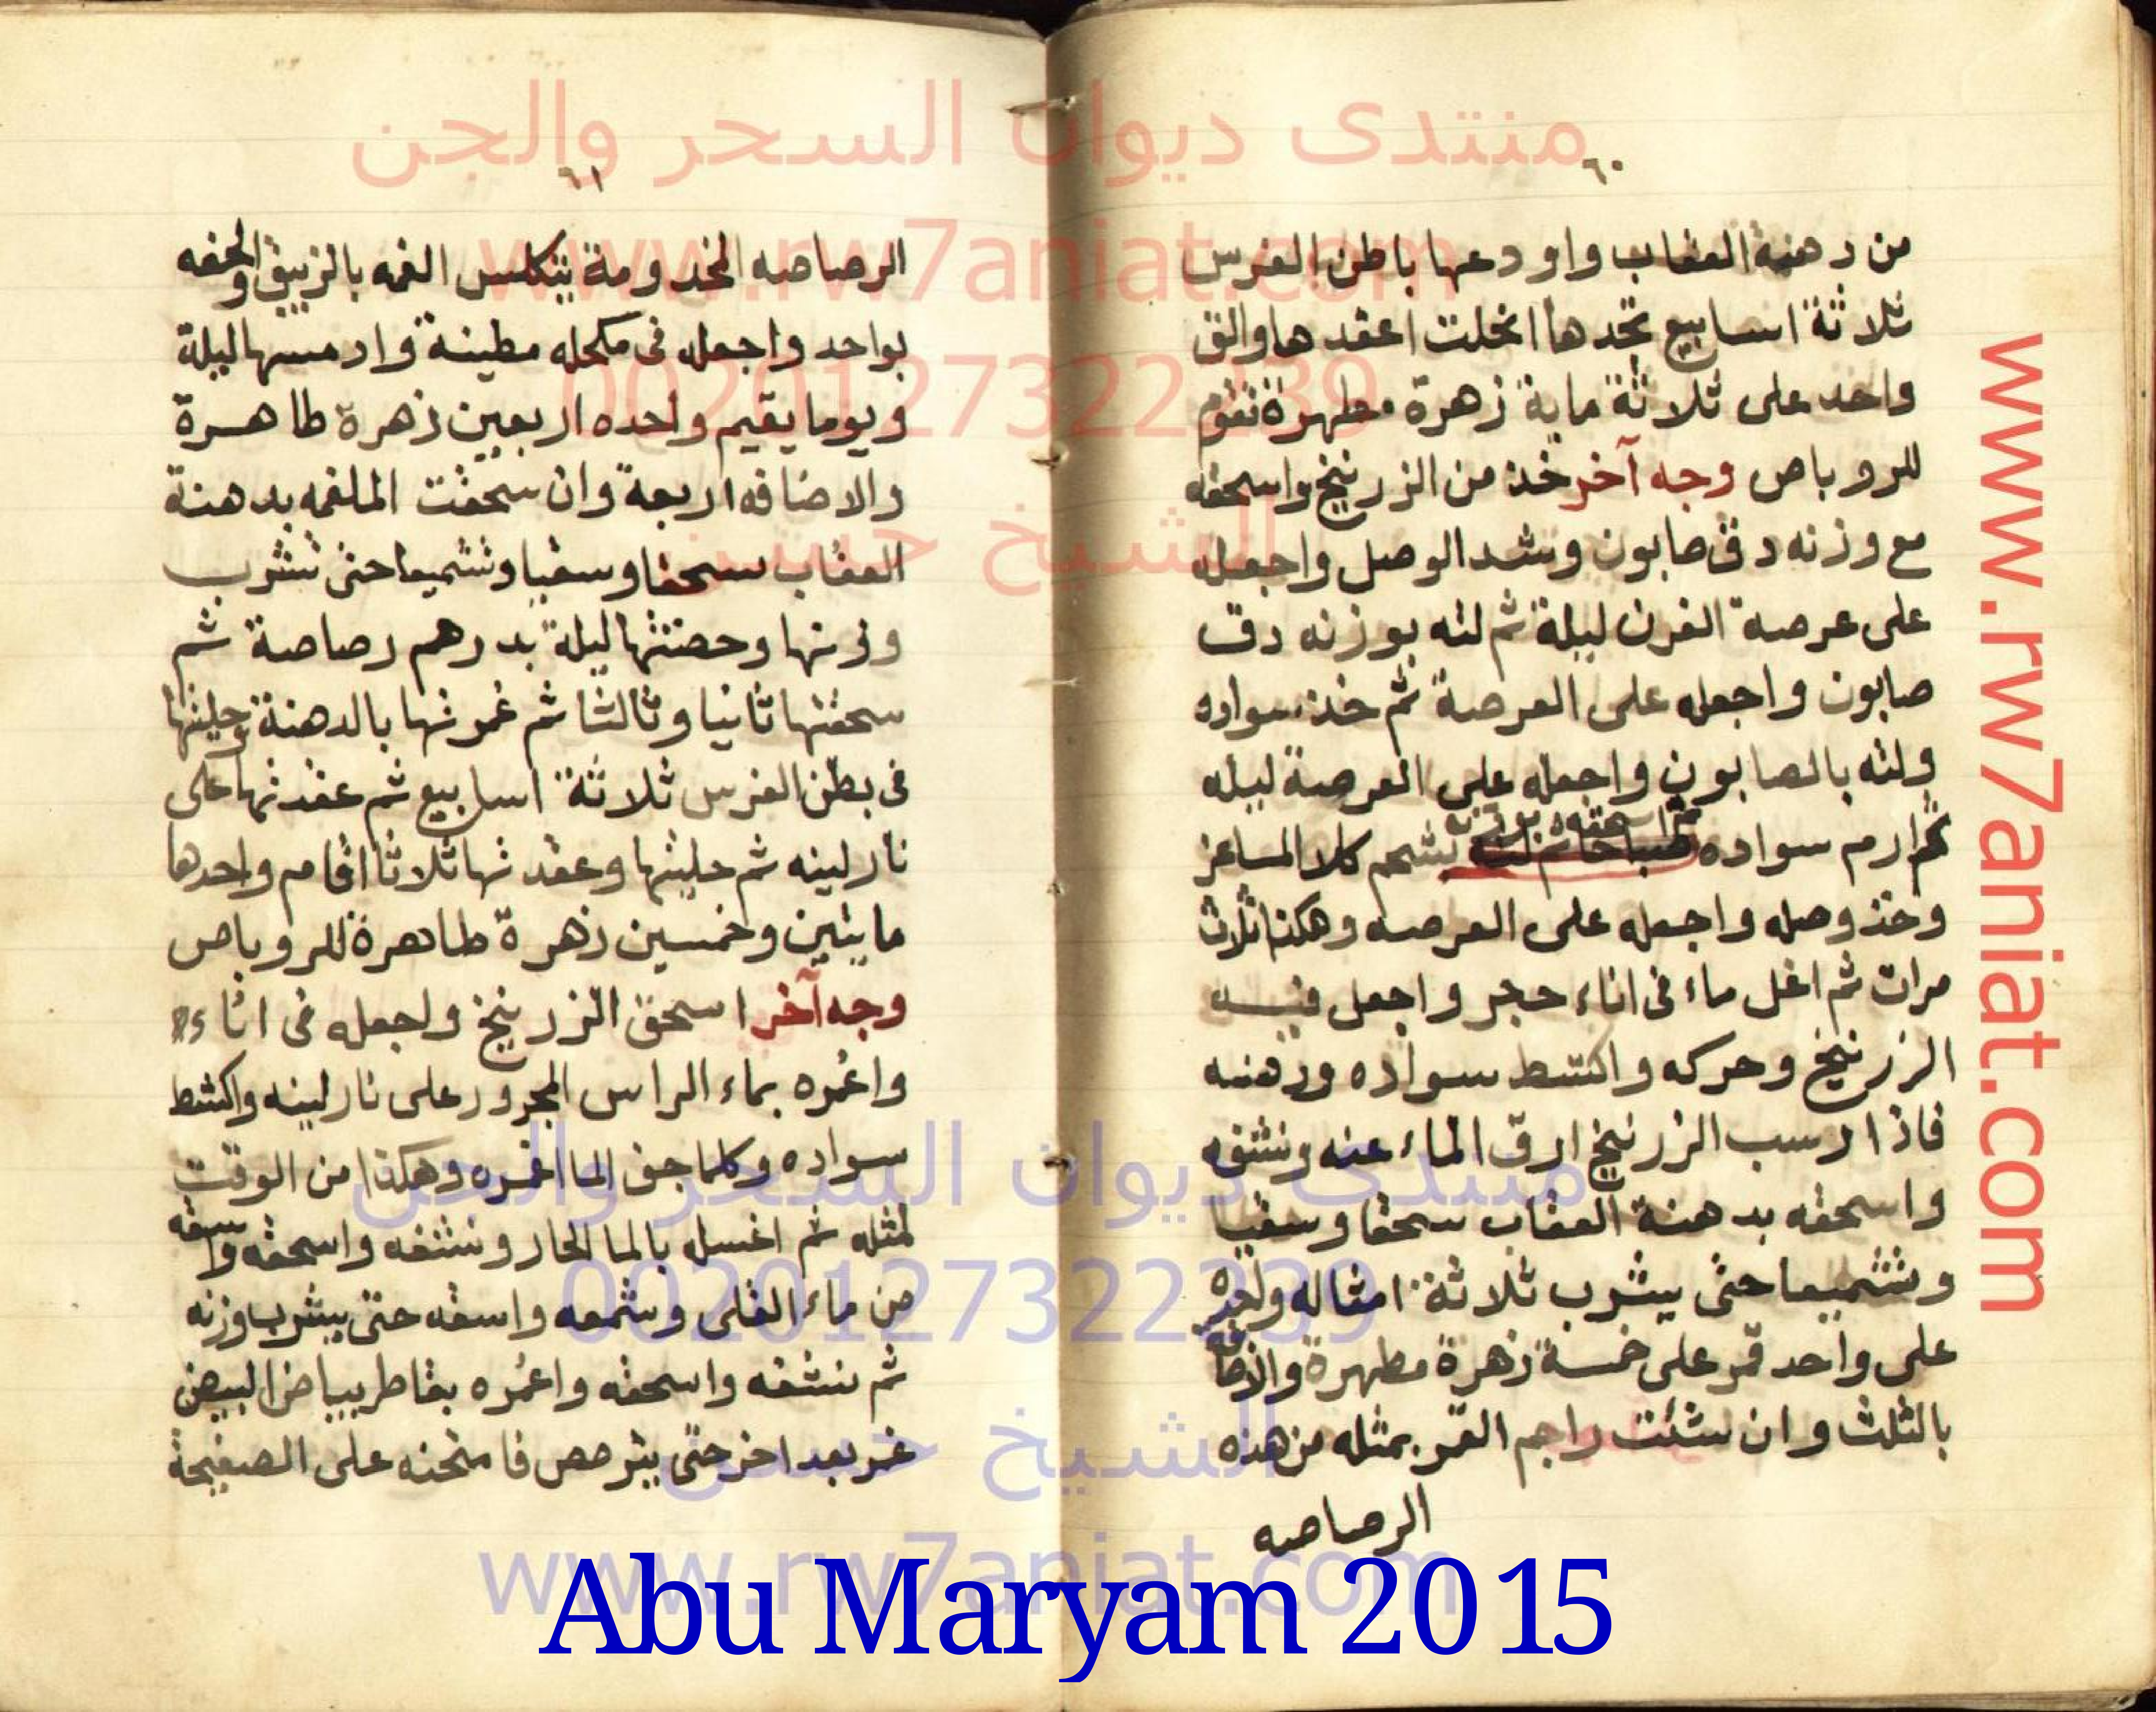 منتدى ديوان السحر والجن
www.rw7aniat.com
0020127322339
الشيخ حسن
٦٠
من دهنة العقاب واودعها باطن الفرس
ثلاثة اسابيع تجدها انحلت اعقدها والق
واحد على ثلاثة ماية زهرة مطهرة تقوم
للروباص وجه آخر خذ من الزرنيخ واسحقه
مع وزنه دق صابون وشد الوصل واجعله
على عرصة الفرن ليلة ثم لته بوزنه دق
صابون واجعله على العرصة ثم خذ سواده
ولته بالصابون واجعله على العرصة ليله
ثم ارم سواده ثم اسحقه بوزنه شحم كلا الماعز
وخذ وصله واجعله على العرصه وهكذا ثلاث
مرات ثم اغل ماء فى اناء حجر واجعل فيه
الزرنيخ وحركه واكشط سواده ودهنه
فاذا رسب الزرنيخ ارق الماء عنه ونشفه
واسحقه بدهنة العقاب سحقا وسقيا
وتشميعا حتى يشرب ثلاثة امثاله
على واحد قمر على خمسة زهرة مطهرة والاضافه
بالثلث وان شئت راجم القمر بمثله من هذه
الرصاصه
٦١
الرصاصه المخدومة بتكلس الغمه بالزيبق والحقه
بواحد واجعله فى مكحله مطينة وادمسها ليلة
ويوما يقيم واحده اربعين زهرة طاهرة
والاضافه اربعة وان سحقت الملغمه بدهنة
العقاب سحقا وسقيا وتشميعا حتى تشرب
وزنها وحضنتها ليلة بدرهم رصاصة ثم
سحقتها ثانيا وثالثا ثم غمرتها بالدهنة وحليتها
فى بطن الفرس ثلاثة اسابيع ثم عقدتها على
نار لينه ثم حليتها وعقدتها ثلاثا اقام واحدها
مايتين وخمسين زهرة طاهرة للروباص
وجه آخر اسحق الزرنيخ واجعله فى اناء
واغمره بماء الراس المجرور على نار لينه واكشط
سواده وكلما جف الما اغمره وهكذا من الوقت
لمثله ثم اغسل بالما الحار ونشفه واسحقه واسقه
من ماء القلى وشمعه واسقه حتى يشرب وزنه
ثم نشفه واسحقه واغمره بقاطر بياض البيض
غمر بعد اخر حتى يترصص فامتحنه على الصفيحة
www.rw7aniat.com
منتدى ديوان السحر والجن
0020127322339
الشيخ حسن
www.rw7aniat.com
Abu Maryam 2015